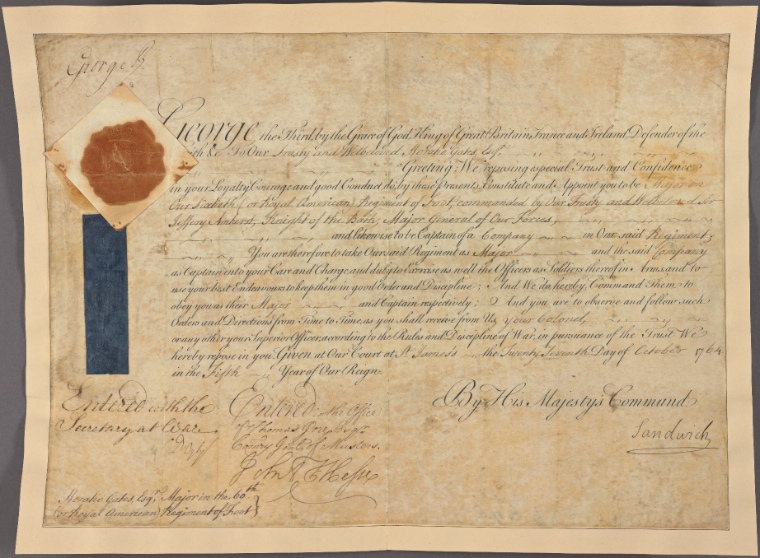 George R.
George the Third, by the Grace of God, King of Great Britain, France and Ireland Defender of the
&c. To Our Trusty and Welbeloved Horatio Gates Esqr.
Greeting: We, reposing special Trust and Confidence
in your Loyalty, Courage and good Conduct, do, by these Presents, Constitute and Appoint you to be Major in
Our Sixtieth (or Royal American) Regiment of Foot, commanded by Our Trusty and Welbeloved Sir
Jeffery Amherst, Knight of the Bath, Major General of Our Forces,
and likewise to be Captain of a Company in Our said Regiment;
You are therefore to take Our said Regiment as Major and the said Company
as Captain into your Care and Charge and duly to Exercise as well the Officers as Soldiers thereof in Arms, and to
use your best Endeavours to keep them in good Order and Discipline; And We do hereby Command Them to
obey you as their Major and Captain respectively; And you are to observe and follow such
Orders and Directions from Time to Time, as you shall receive from Us, your Colonel,
or any other your Superior Officer, according to the Rules and Discipline of War, in pursuance of the Trust We
hereby repose in you. Given at Our Court at St. James's the Twenty Seventh Day of October 1764
in the Fifth Year of Our Reign.
By His Majesty's Command
Sandwich
Entered with the
Secretary at War
Entered in the Office
of Thomas Gore Esqr.
Comry. Genl. of Musters.
Horatio Gates, Esqr. Major in the 60th.
(or Royal American) Regiment of Foot